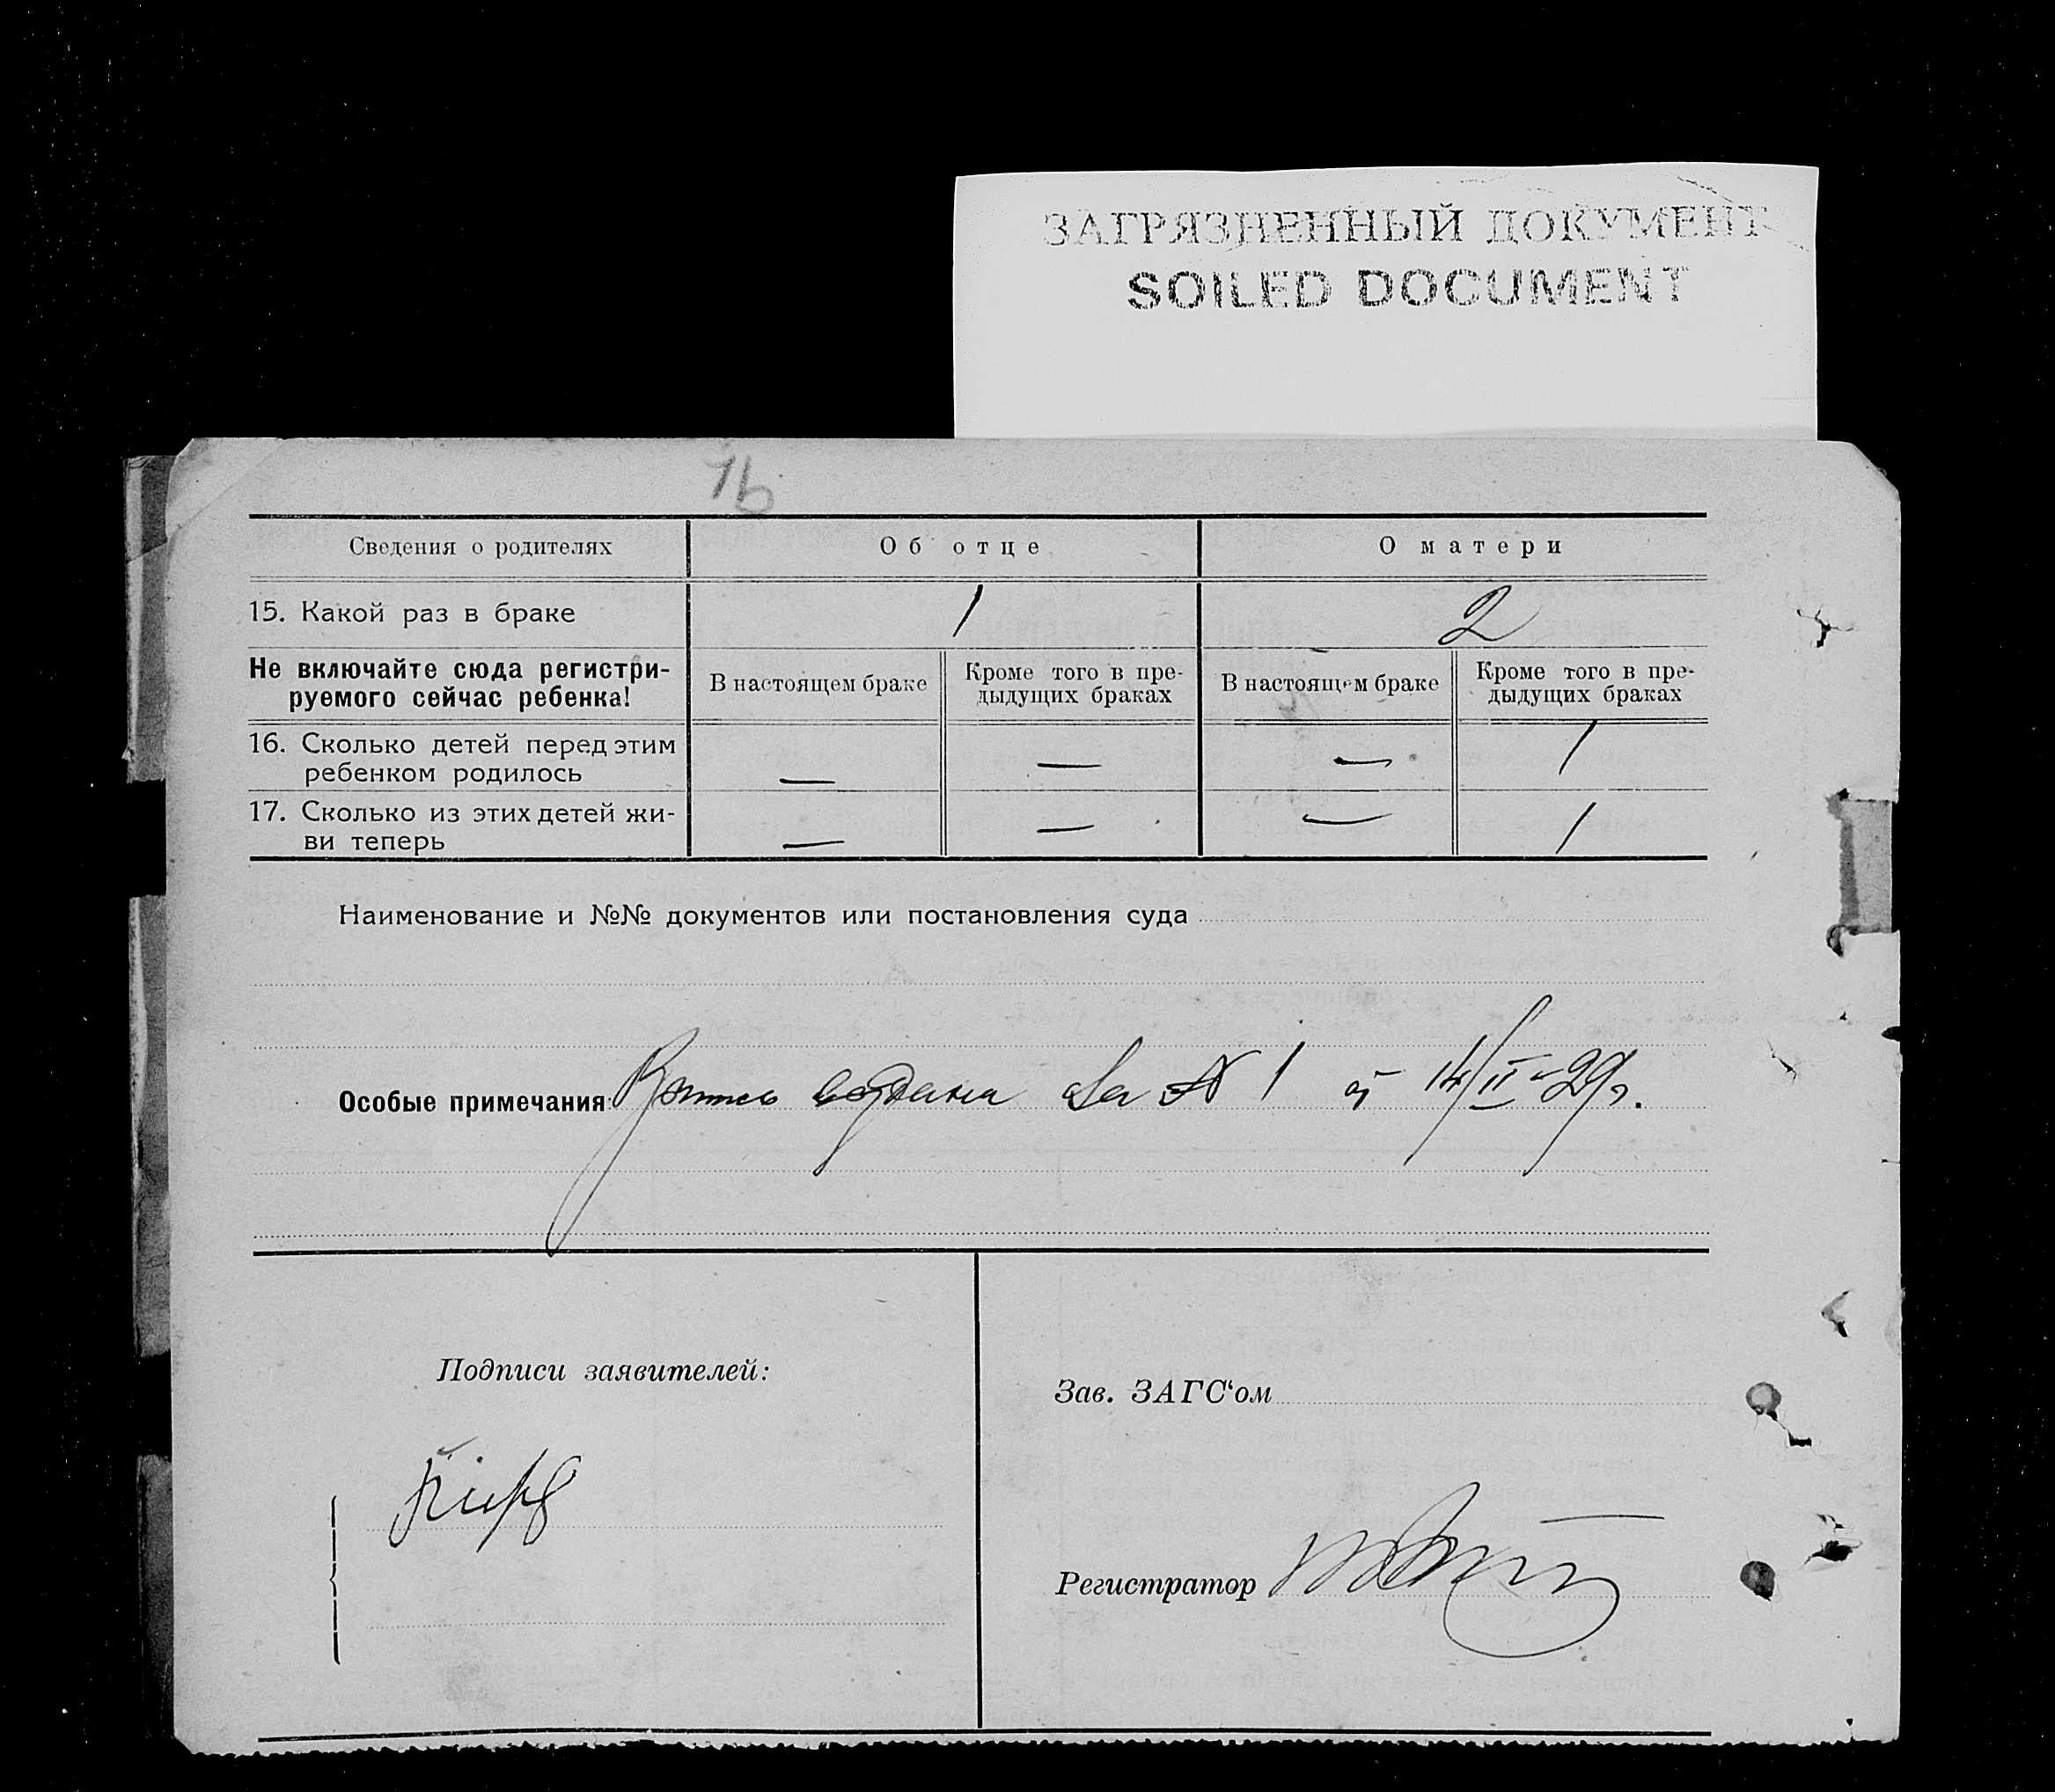 ЗАГРЯЗНЕННЫЙ ДОКУМЕНТ
SOILED DOCUMENT
Сведения о родителях Об отце О матери
15. Какой раз в браке 1 2
Не включайте сюда регистри-
руемого сейчас ребенка!
В настоящем браке
Кроме того в пре-
дыдущих браках
В настоящем браке
Кроме того в пре-
дыдущих браках
16. Сколько детей перед этим
ребенком родилось — — — 1
17. Сколько из этих детей жи-
ви теперь — — — 1
Наименование и №№ документов или постановления суда
Особые примечания: за № 1 14/II-29г.
Подписи заявителей:
Зав. ЗАГС‘ом
Регистратор